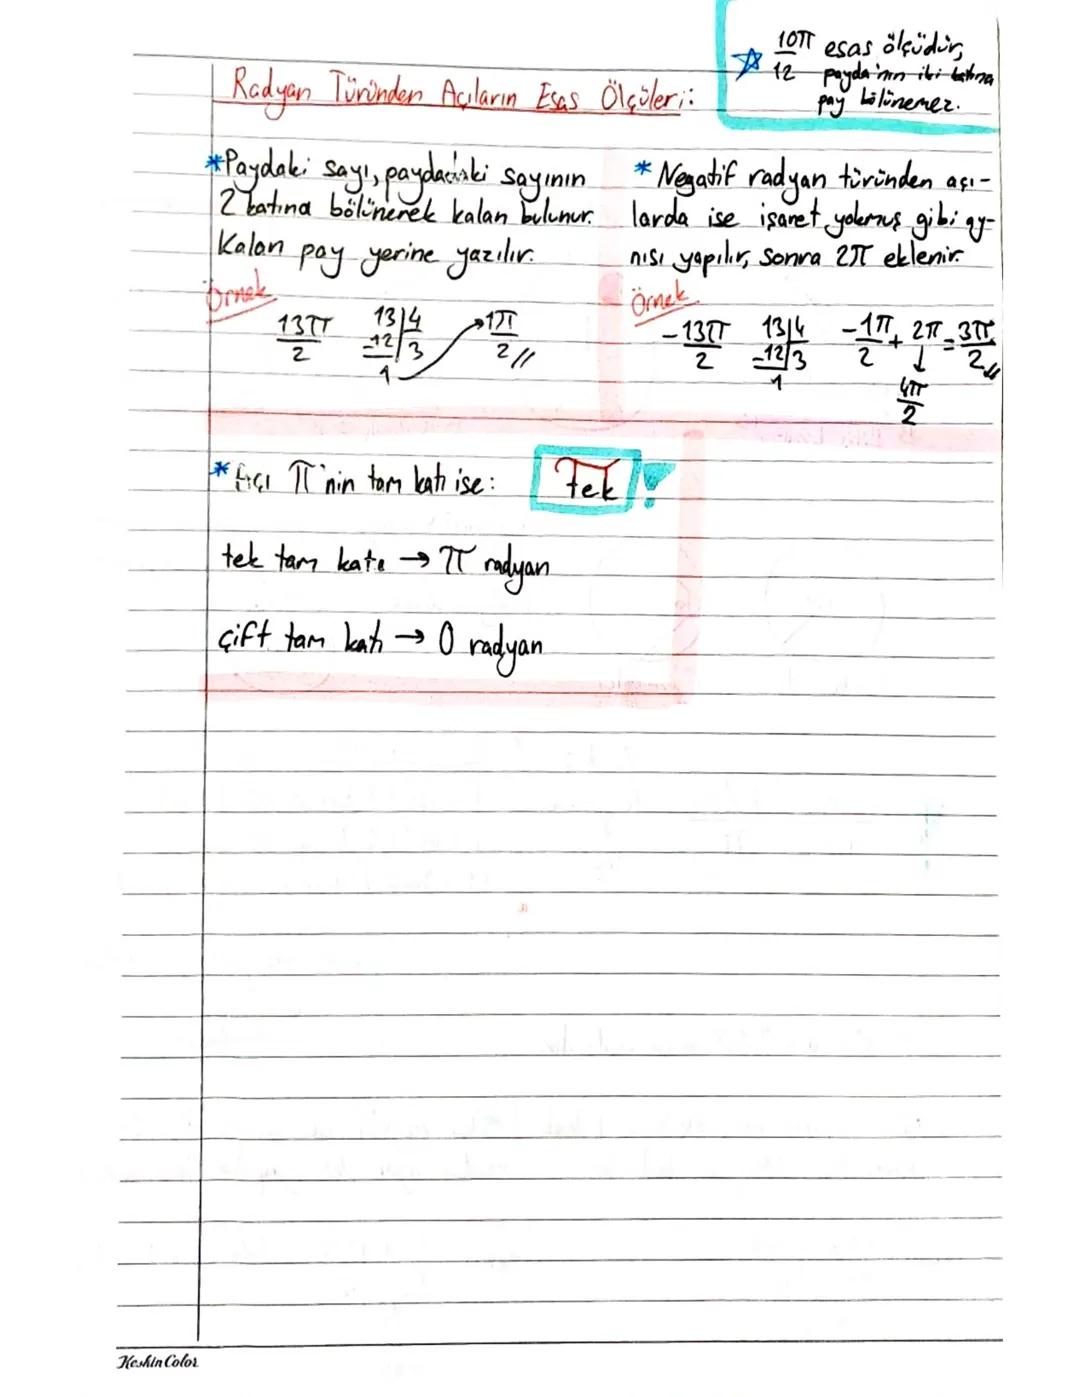 10π/12 esas ölçüdür,
payda'nın iki katına
pay bölünemez.
Radyan Türünden Açıların Esas Ölçüleri:
*Paydaki sayı, paydadaki sayının
2 katına bölünerek kalan bulunur.
Kalan pay yerine yazılır.
Örnek
13π/2 13|4 -12|3 1 → 1π/2 //
* Negatif radyan türünden açı-
larda ise işaret yokmuş gibi ay-
nısı yapılır, sonra 2π eklenir.
Örnek
-13π/2 13|4 -12|3 1 -1π/2 + 2π = 3π/2 //
↓
4π/2
* Açı π'nin tam katı ise: Tek !
tek tam katı → π radyan
çift tam katı → 0 radyan
Keskin Color